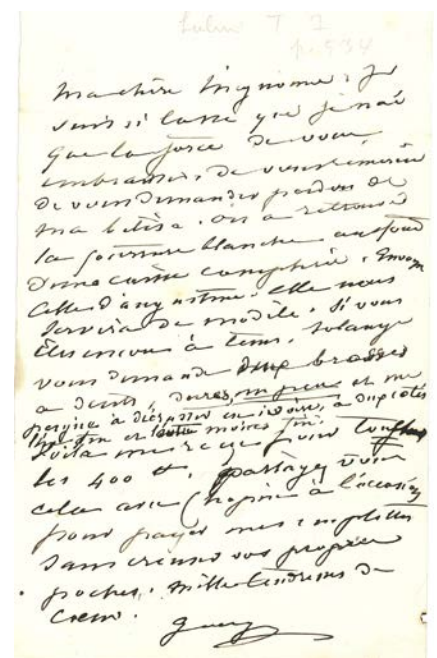 Lubin T I
p. 534
Ma chère mignonne, je
suis si lasse que je n'ai
que la force de vous
embrasser, de vous remercier
de vous demander pardon de
ma bêtise. On a retrouvé
la fourrure blanche au fond
d'une caisse
celle d'augustine. Elle nous
servira de modèle. Si vous
êtes encore à tems. Solange
vous demande deux brosses
à dents, dures, un peu et un
peigne à en ivoire, à dux cotés
un fin et l'autre moins fin.
Voilà un reçu pour toucher
les 400 f. partagez vous
cela avec Chopin à l'occasion
pour payer mes emplettes
sans creuser vos propres
poches. Mille tendresses de
cœur.
George